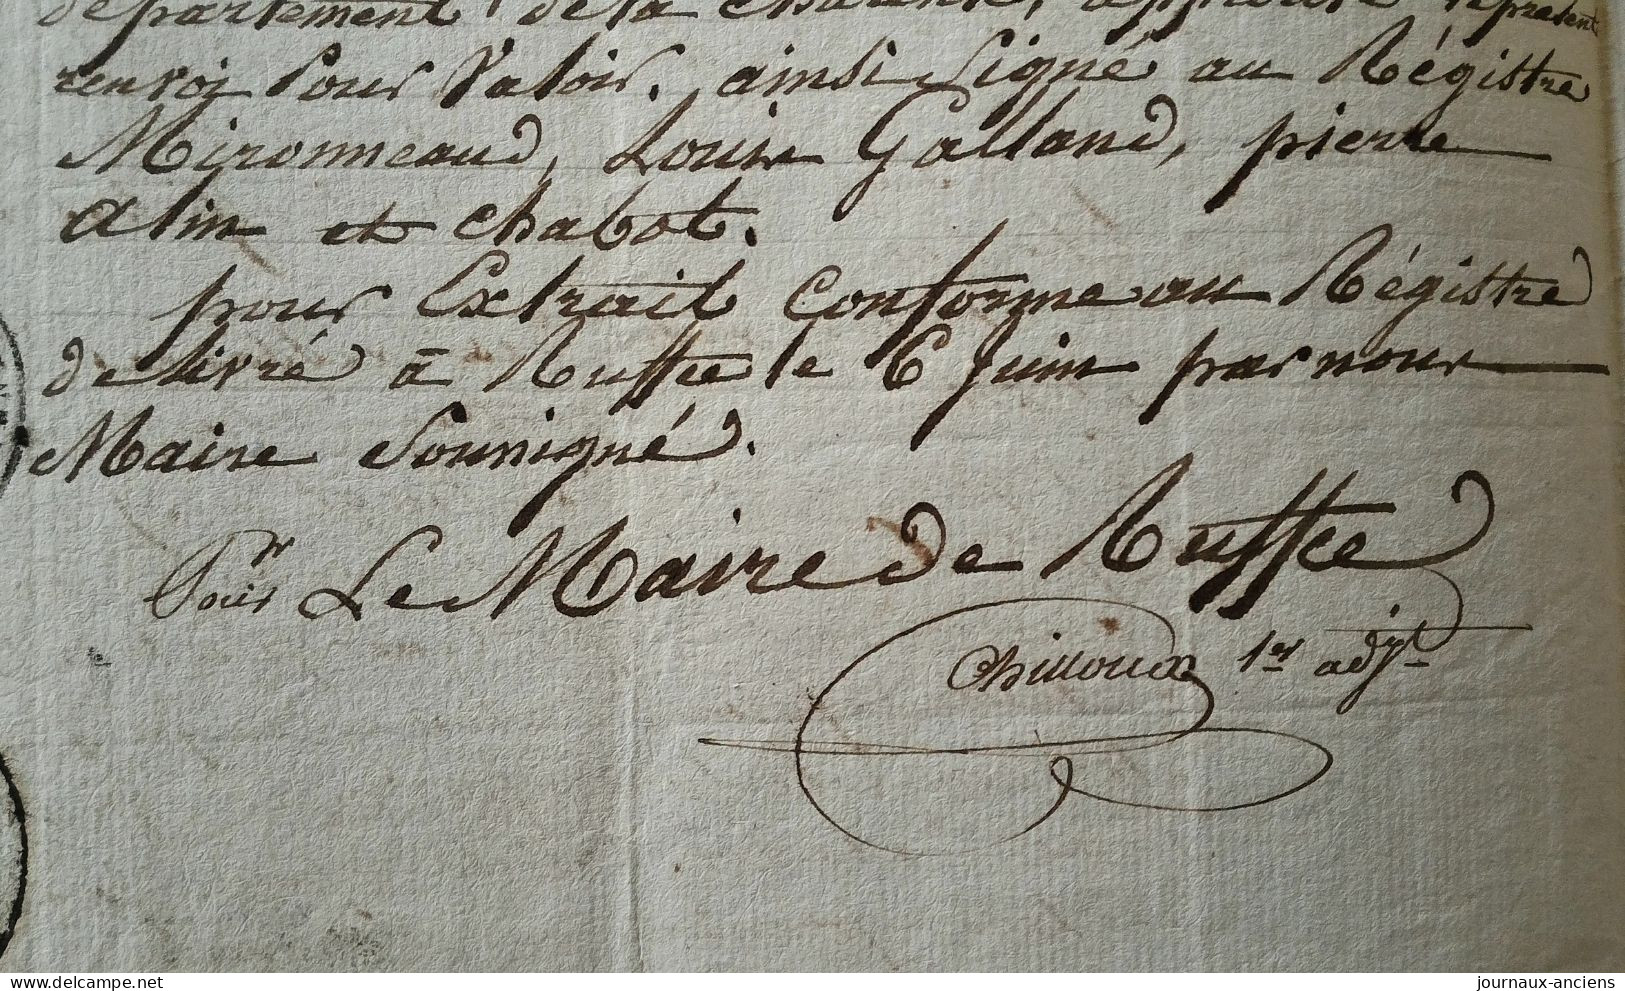 département de la Charente, approuvé le présent
renvoi pour Valoir. ainsi Signé au Régistre
Mironneaud, Louis Galland, pierre
alin et Chabot.
pour Extrait Conforme au Régistre
delivré à Ruffec le 6 Juin par nous
Maire Sousigné.
Pour Le Maire de Ruffec
Chilloux 1er adjt
journaux-anciens